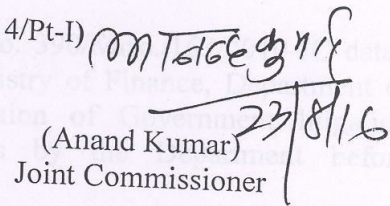 4/Pt-I)
आनन्द कुमार
23/8/16
(Anand Kumar)
Joint Commissioner